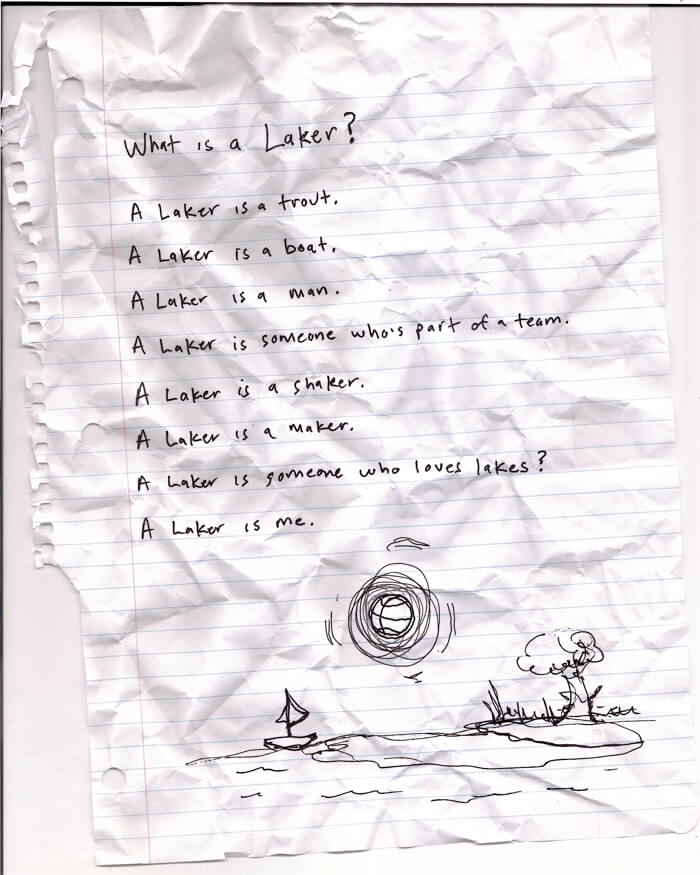 What is a Laker?
A Laker is a trout.
A Laker is a boat.
A Laker is a man.
A Laker is someone who's part of a team.
A Laker is a shaker.
A Laker is a maker.
A Laker is someone who loves lakes?
A Laker is me.